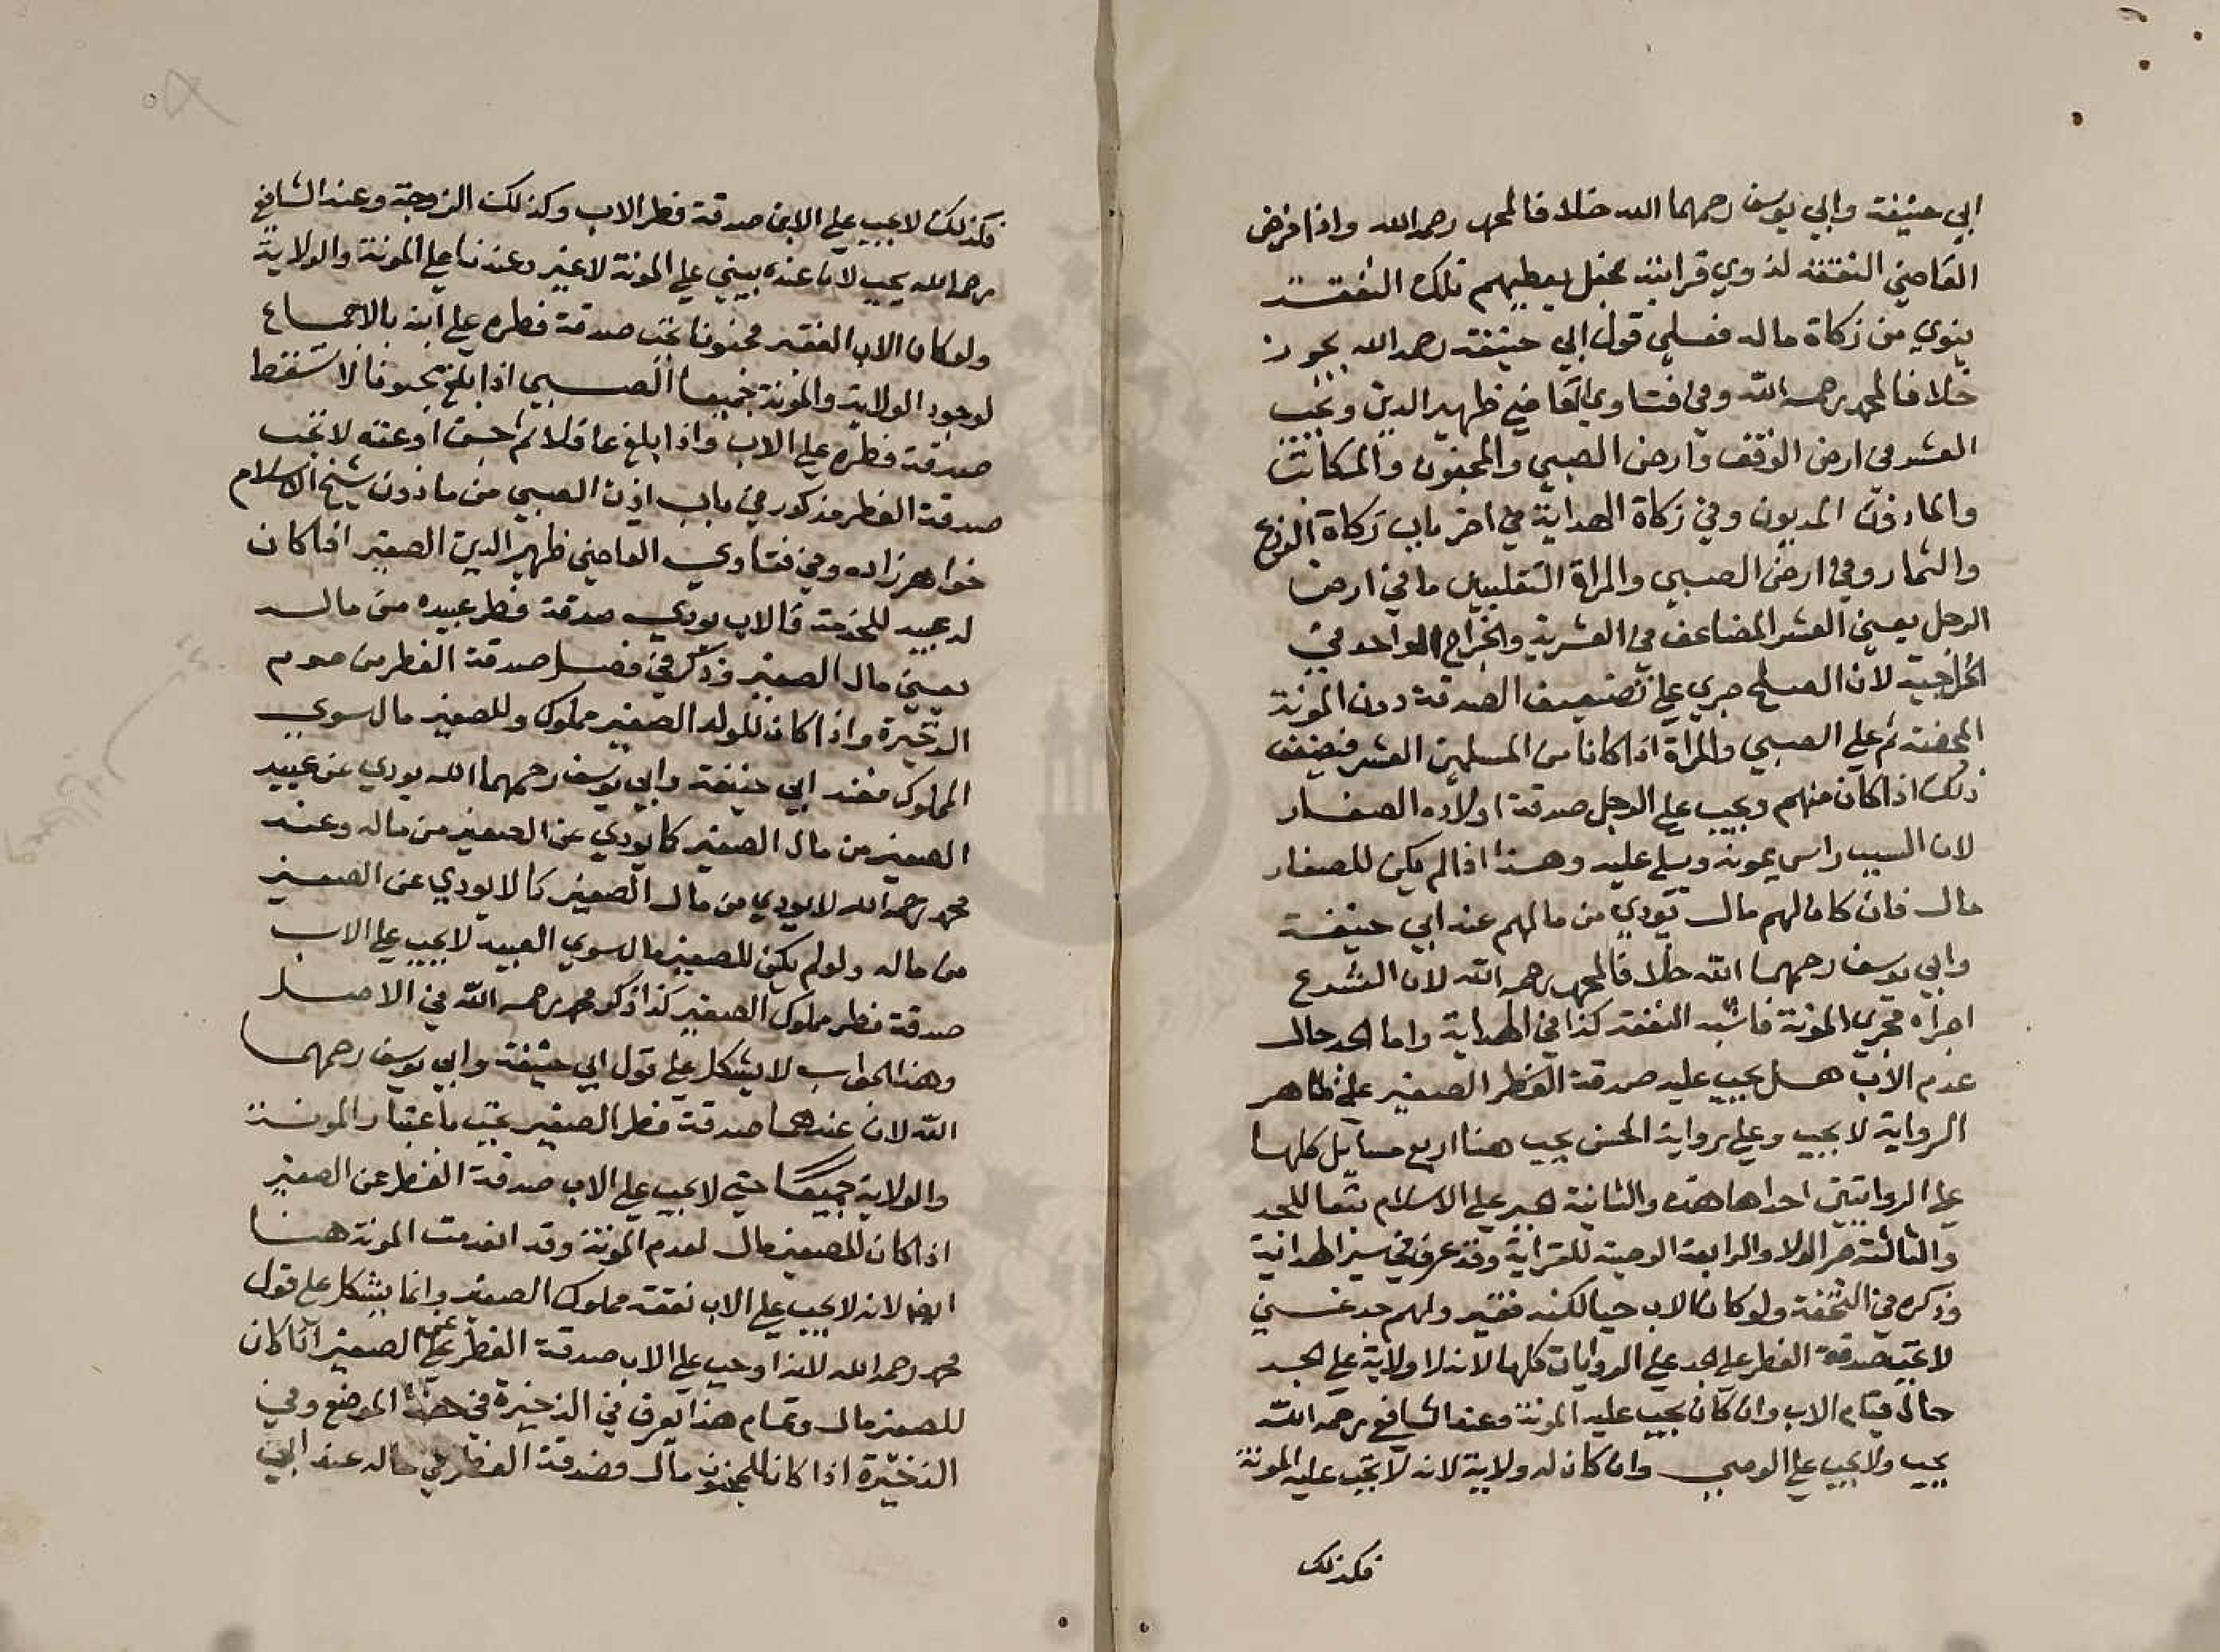 ابي حنيفة وابي يوسف رحمهما الله خلافا لمحمد رحمه الله واذا فرض
القاضي النفقة لذوي قرابته فجعل يعطيهم تلك النفقة
ينوي من زكاة ماله فعلى قول ابي حنيفة رحمه الله يجوز
خلافا لمحمد رحمه الله وفي فتاوي القاضي ظهير الدين ويجب
العشر في ارض الوقف وارض الصبي والمجنون والمكاتب
والماذون المديون وفي زكاة الهداية في اخر باب زكاة الزرع
والثمار وفي ارض الصبي والمراة التغلبيين ما في ارض
الرجل يعني العشر المضاعف في العشرية والخراج الواحد في
الخراجية لان الصلح جري على تضعيف الصدقة دون المونة
المحضة ثم علي الصبي والمراة اذا كانا من المسلمين العشر فيضعف
ذلك اذا كان منهم ويجب علي الرجل صدقة اولاده الصغار
لان السبب راس يمونه ويلي عليه وهذا اذا لم يكن للصغار
مال فان كان لهم مال يودي من مالهم عند ابي حنيفة
وابي يوسف رحمهما الله خلافا لمحمد رحمه الله لان الشرع
اجراه مجري المونة فاشبه النفقة كذا في الهداية واما الجد حال
عدم الاب هل يجب عليه صدقة الفطر الصغير علي ظاهر
الرواية لا يجب وعلي رواية الحسن يجب هنا اربع مسايل كلها
علي الروايتين احداها هذه والثانية يجبر علي الاسلام تبعا للجد
والثالثة جر الولا والرابعة الوصية للقرابة وقد عرف في سير الهداية
وذكره في التحفة ولو كان الاب حيا لكنه فقير ولهم جد غني
لا تجب صدقة الفطر علي الجد علي الروايات كلها لانه لا ولاية علي الجد
حال قيام الاب وان كان يجب عليه المونة وعند الشافعي رحمه الله
يجب ولا يجب علي الوصي وان كان له ولاية لانه لا تجب عليه المونة
فكذلك
فكذلك لا يجب علي الابن صدقة فطر الاب وكذلك الزوجة وعند الشافعي
رحمه الله يجب لان عنده يبتني علي المونة لا غير وعندنا علي المونة والولاية
ولو كان الاب الفقير مجنونا تجب صدقة فطره علي ابنه بالاجماع
لوجود الولاية والمونة جميعا الصبي اذا بلغ مجنونا لا تسقط
صدقة فطره علي الاب واذا بلغ عاقلا ثم جن او عته لا تجب
صدقة الفطر مذكور في باب اذن الصبي من ماذون شيخ الاسلام
خواهر زاده وفي فتاوي القاضي ظهير الدين الصغير اذا كان
له عبيد للخدمة فالاب يودي صدقة فطر عبيده من ماله
يعني مال الصغير وذكر في فصل صدقة الفطر من صوم
الذخيرة واذا كان للولد الصغير مملوك وللصغير مال سوي
المملوك فعند ابي حنيفة وابي يوسف رحمهما الله يودي عن عبيد
الصغير من مال الصغير كما يودي عن الصغير من ماله وعند
محمد رحمه الله لا يودي من مال الصغير كما لا يودي عن الصغير
من ماله ولو لم يكن للصغير مال سوي العبيد لا يجب علي الاب
صدقة فطر مملوك الصغير كذا ذكر محمد رحمه الله في الاصل
وهذا الجواب لا يشكل علي قول ابي حنيفة وابي يوسف رحمهما
الله لان عندهما صدقة فطر الصغير تجب باعتبار المونة
والولاية جميعا حتي لا يجب علي الاب صدقة الفطر عن الصغير
اذا كان للصغير مال لعدم المونة وقد انعدمت المونة هنا
ايضا لانه لا يجب علي الاب نفقة مملوك الصغير وانما يشكل علي قول
محمد رحمه الله لانه اوجب علي الاب صدقة الفطر الصغير اذا كان
للصغير مال وتمام هذا يعرف في الذخيرة في هذا الموضع وفي
الذخيرة اذا كان للمجنون مال فصدقة الفطر في ماله عند ابي